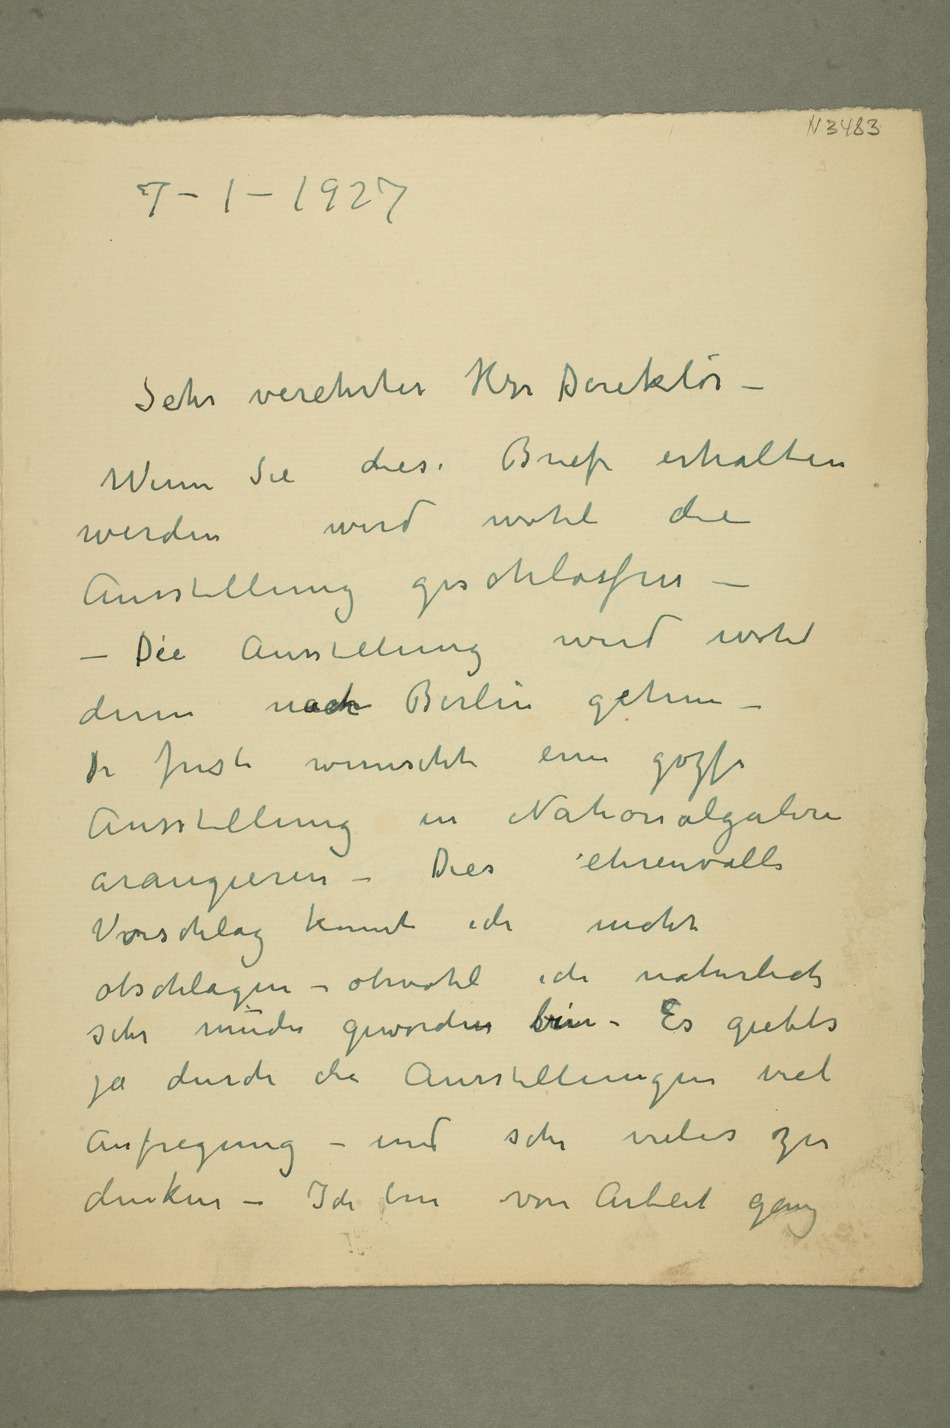 N 3483
7 – 1 – 1927
Sehr verehrter Herr Direktör –
Wenn Sie diese Brief erhalten
werden wird wohl die
Ausstellung geschlossen –
– Die Ausstellung wird wohl
denn nach Berlin gehen –
Dr Justi wunscht eine gozse
Ausstellung in Nationalgalerie
arangieren – Dies ehrenvolle
Vorschlag konnte ich nicht
abschlagen – obwohl ich naturlich
sehr müde geworden bin – Es giebts
ja durch die Ausstellungen viel
Aufregung – und sehr vieles zu
denken – Ich bin von Arbeit ganz